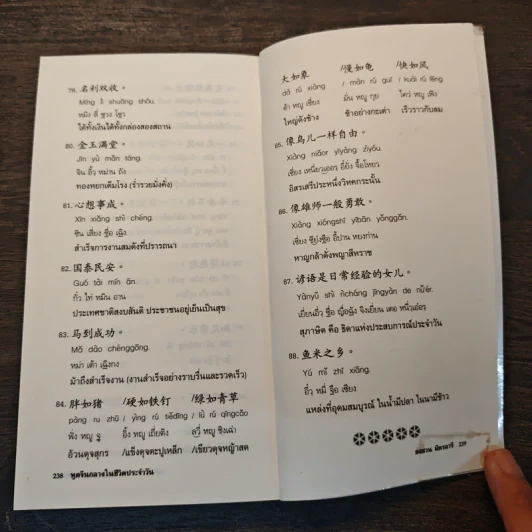 79. 名利双收。
Míng lì shuāng shōu.
หมิง ลี่ ซวง โซว
ได้ทั้งเงินได้ทั้งกล่องสองสถาน
80. 金玉满堂。
Jīn yù mǎn táng.
จิน อวี้ หม่าน ถัง
ทองหยกเต็มโรง (ร่ำรวยมั่งคั่ง)
81. 心想事成。
Xīn xiǎng shì chéng.
ซิน เสี่ยง ซื่อ เฉิง
สำเร็จการงานสมดังที่ปรารถนา
82. 国泰民安。
Guó tài mín ān.
กั๋ว ไท่ หมิน อาน
ประเทศชาติสงบสันติ ประชาชนอยู่เย็นเป็นสุข
83. 马到成功。
Mǎ dào chénggōng.
หม่า เต้า เฉิงกง
ม้าถึงสำเร็จงาน (งานสำเร็จอย่างราบรื่นและรวดเร็ว)
84. 胖如猪 /硬如铁钉 /绿如青草
pàng rú zhū / yìng rú tiědīng / lǜ rú qīngcǎo
พั่ง หญู จู อิ้ง หญู เถี่ยติง ลวี่ หญู ชิงเฉ่า
อ้วนดุจสุกร /แข็งดุจตะปูเหล็ก /เขียวดุจหญ้าสด
238 พูดจีนกลางในชีวิตประจำวัน
大如象 /慢如龟 /快如风
dà rú xiàng / màn rú guī / kuài rú fēng
ต้า หญู เซี่ยง มั่น หญู กุย ไคว่ หญู เฟิง
ใหญ่ดังช้าง ช้าอย่างกะเต่า เร็วราวกับลม
85. 像鸟儿一样自由。
Xiàng niǎor yīyàng zìyóu.
เซี่ยง เหนี่ยวเออร อี๋ยั่ง จื้อโหยว
อิสรเสรีประหนึ่งวิหคกระนั้น
86. 像雄师一般勇敢。
Xiàng xióngshī yībān yǒnggǎn.
หาญกล้าดั่งพญาสีหราช
87. 谚语是日常经验的女儿。
Yànyǔ shì rìcháng jīngyàn de nǚ'ér.
สุภาษิต คือ ธิดาแห่งประสบการณ์ประจำวัน
88. 鱼米之乡。
Yú mǐ zhī xiāng.
อวี๋ หมี่ จือ เซียง
แหล่งที่อุดมสมบูรณ์ ในน้ำมีปลา ในนามีข้าว
239